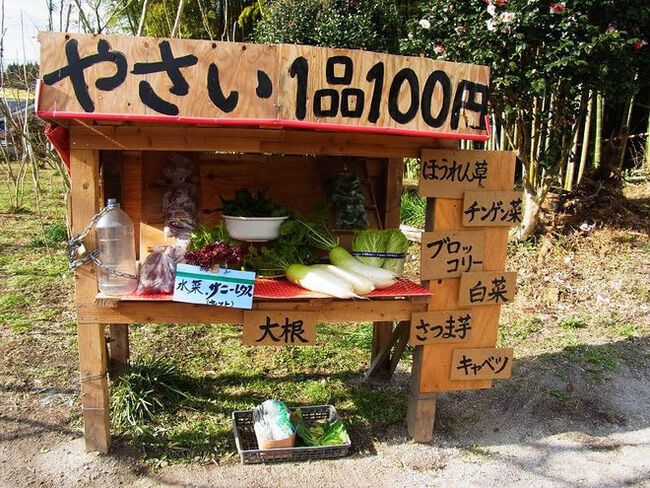 やさい1品100円
ほうれん草
チンゲン菜
ブロッ
コリー
白菜
さつま芋
キャベツ
水菜、サニーレタス
(セット)
大根